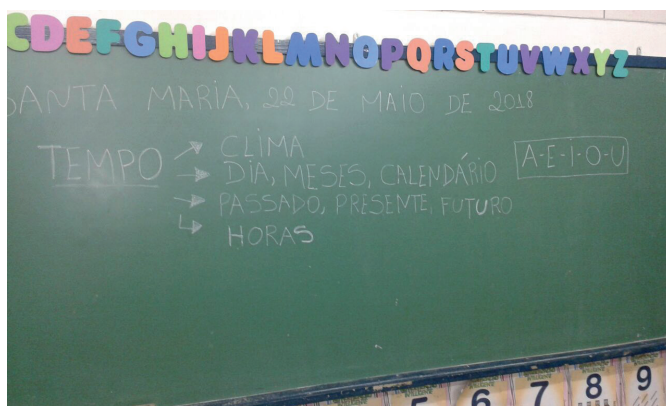 CDEFGHIJKLMNOPQRSTUVWXYZ
SANTA MARIA, 22 DE MAIO DE 2018
TEMPO → CLIMA
→ DIA, MESES, CALENDÁRIO
A-E-I-O-U
→ PASSADO, PRESENTE, FUTURO
↳ HORAS
5 6 7 8 9